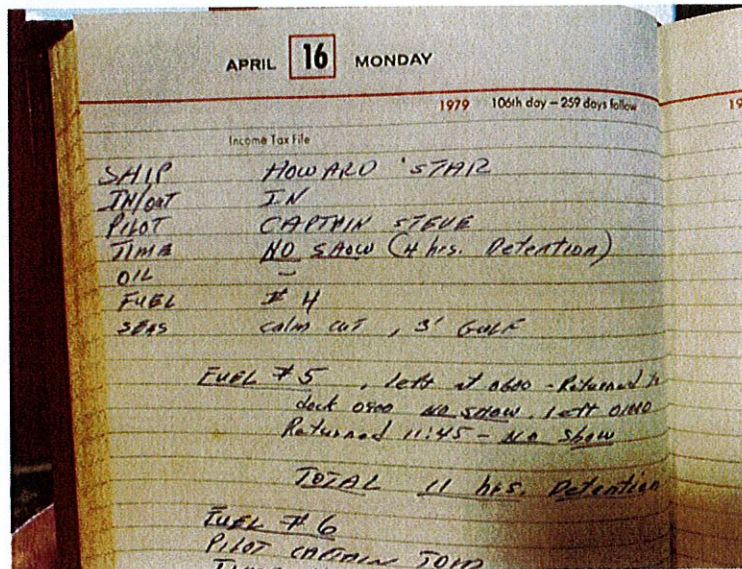 APRIL 16 MONDAY
1979 106th day – 259 days follow
19
Income Tax File
SHIP HOWARD STAR
IN/OUT IN
PILOT CAPTAIN STEVE
TIME NO SHOW (4 hrs. Detention)
OIL –
FUEL # 4
SEAS calm cut, 3' GULF
FUEL # 5, left at 0600 - Returned to
dock 0900 NO SHOW. left
Returned 11:45 - NO Show
TOTAL 11 hrs. Detention
FUEL # 6
PILOT CAPTAIN TOM